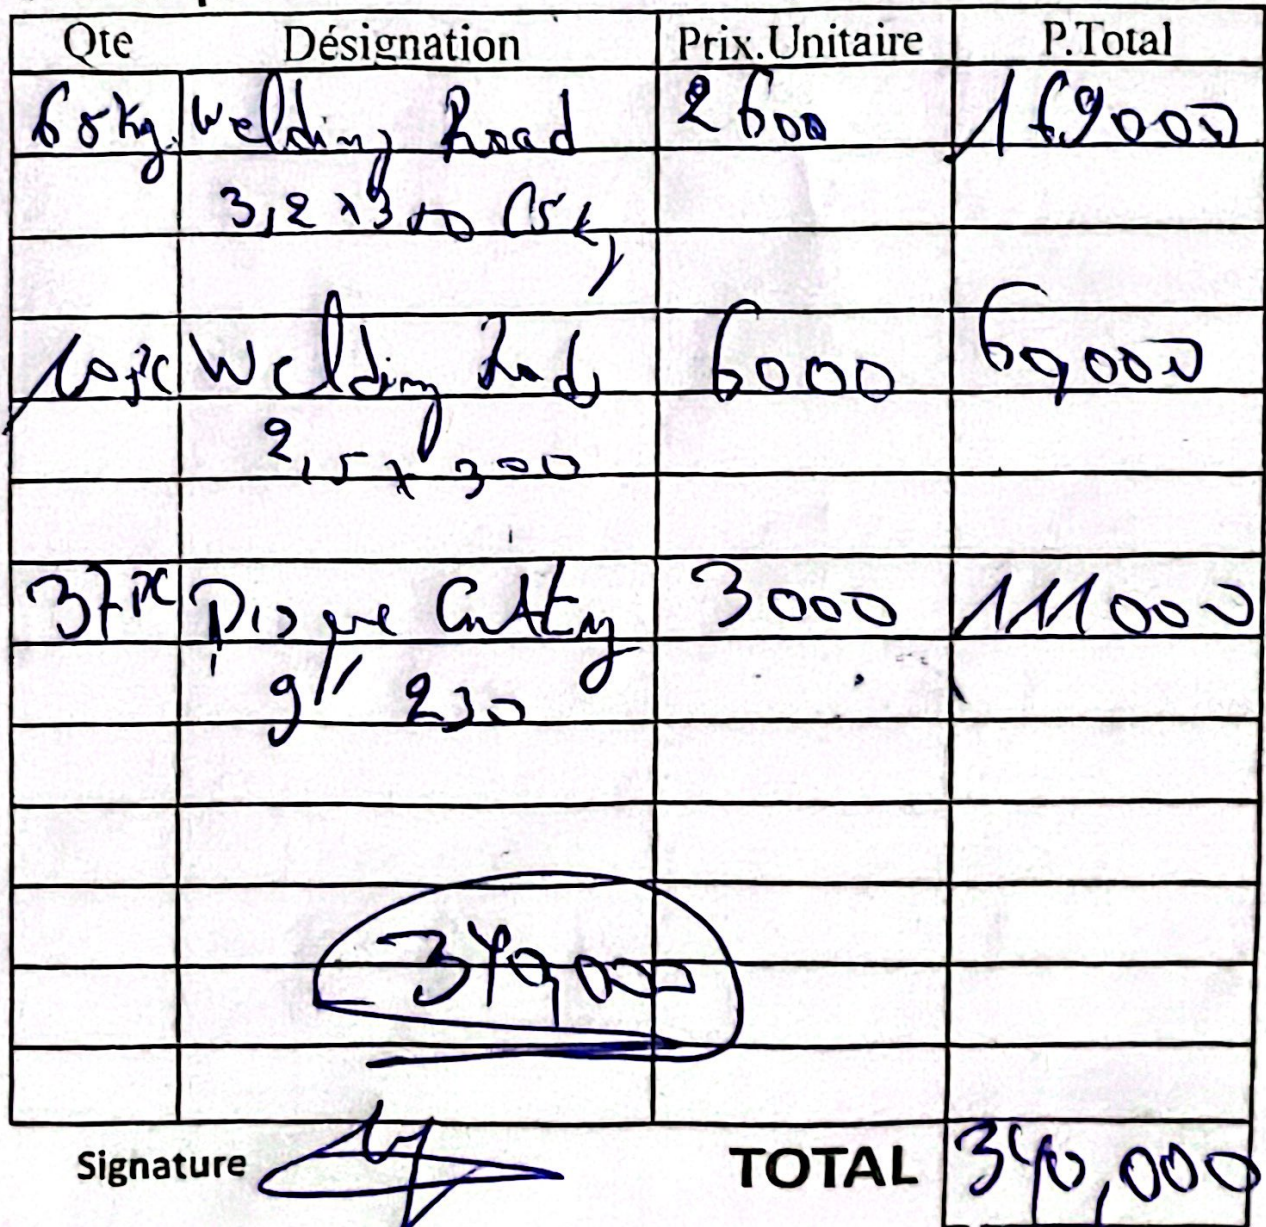 Qte Désignation Prix.Unitaire P.Total
65kg Welding Road 2600 169000
3,2 x 300 (5k)
10pc Welding Rods 6000 60,000
2,5 x 300
37pc Disque Cutting 3000 111000
9" 230
340,000
Signature TOTAL 340,000